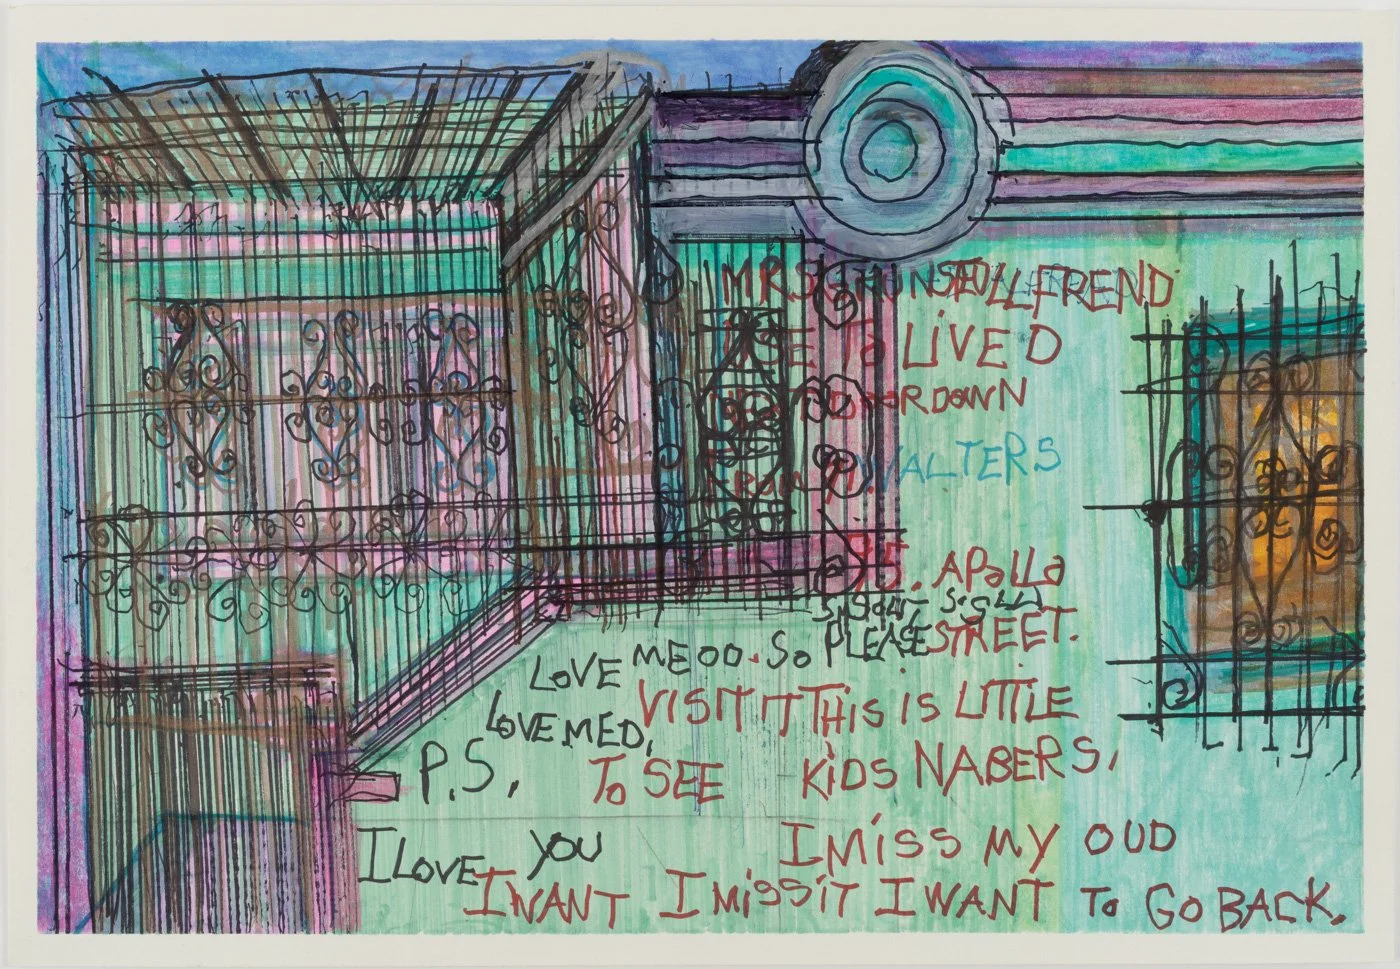 MRS STILL FREND
USE TO LIVED
DOOR DOWN
FROM M. WALTERS
75. APALLA
STREET.
LOVE ME OO. SO PLEASE
VISIT IT THIS IS LITTLE
LOVE MED,
P.S, TO SEE KIDS NABERS,
I LOVE YOU I MISS MY OUD
I WANT I MISS IT I WANT TO GO BACK.